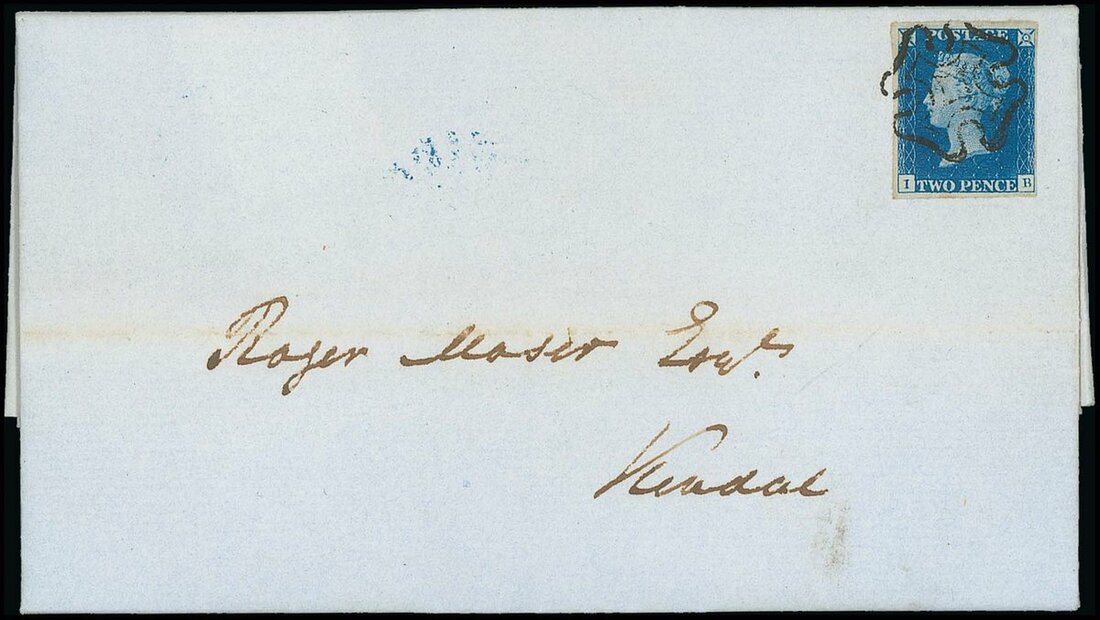 POSTAGE
I TWO PENCE B
Roger Moser Esqr.
Kendal